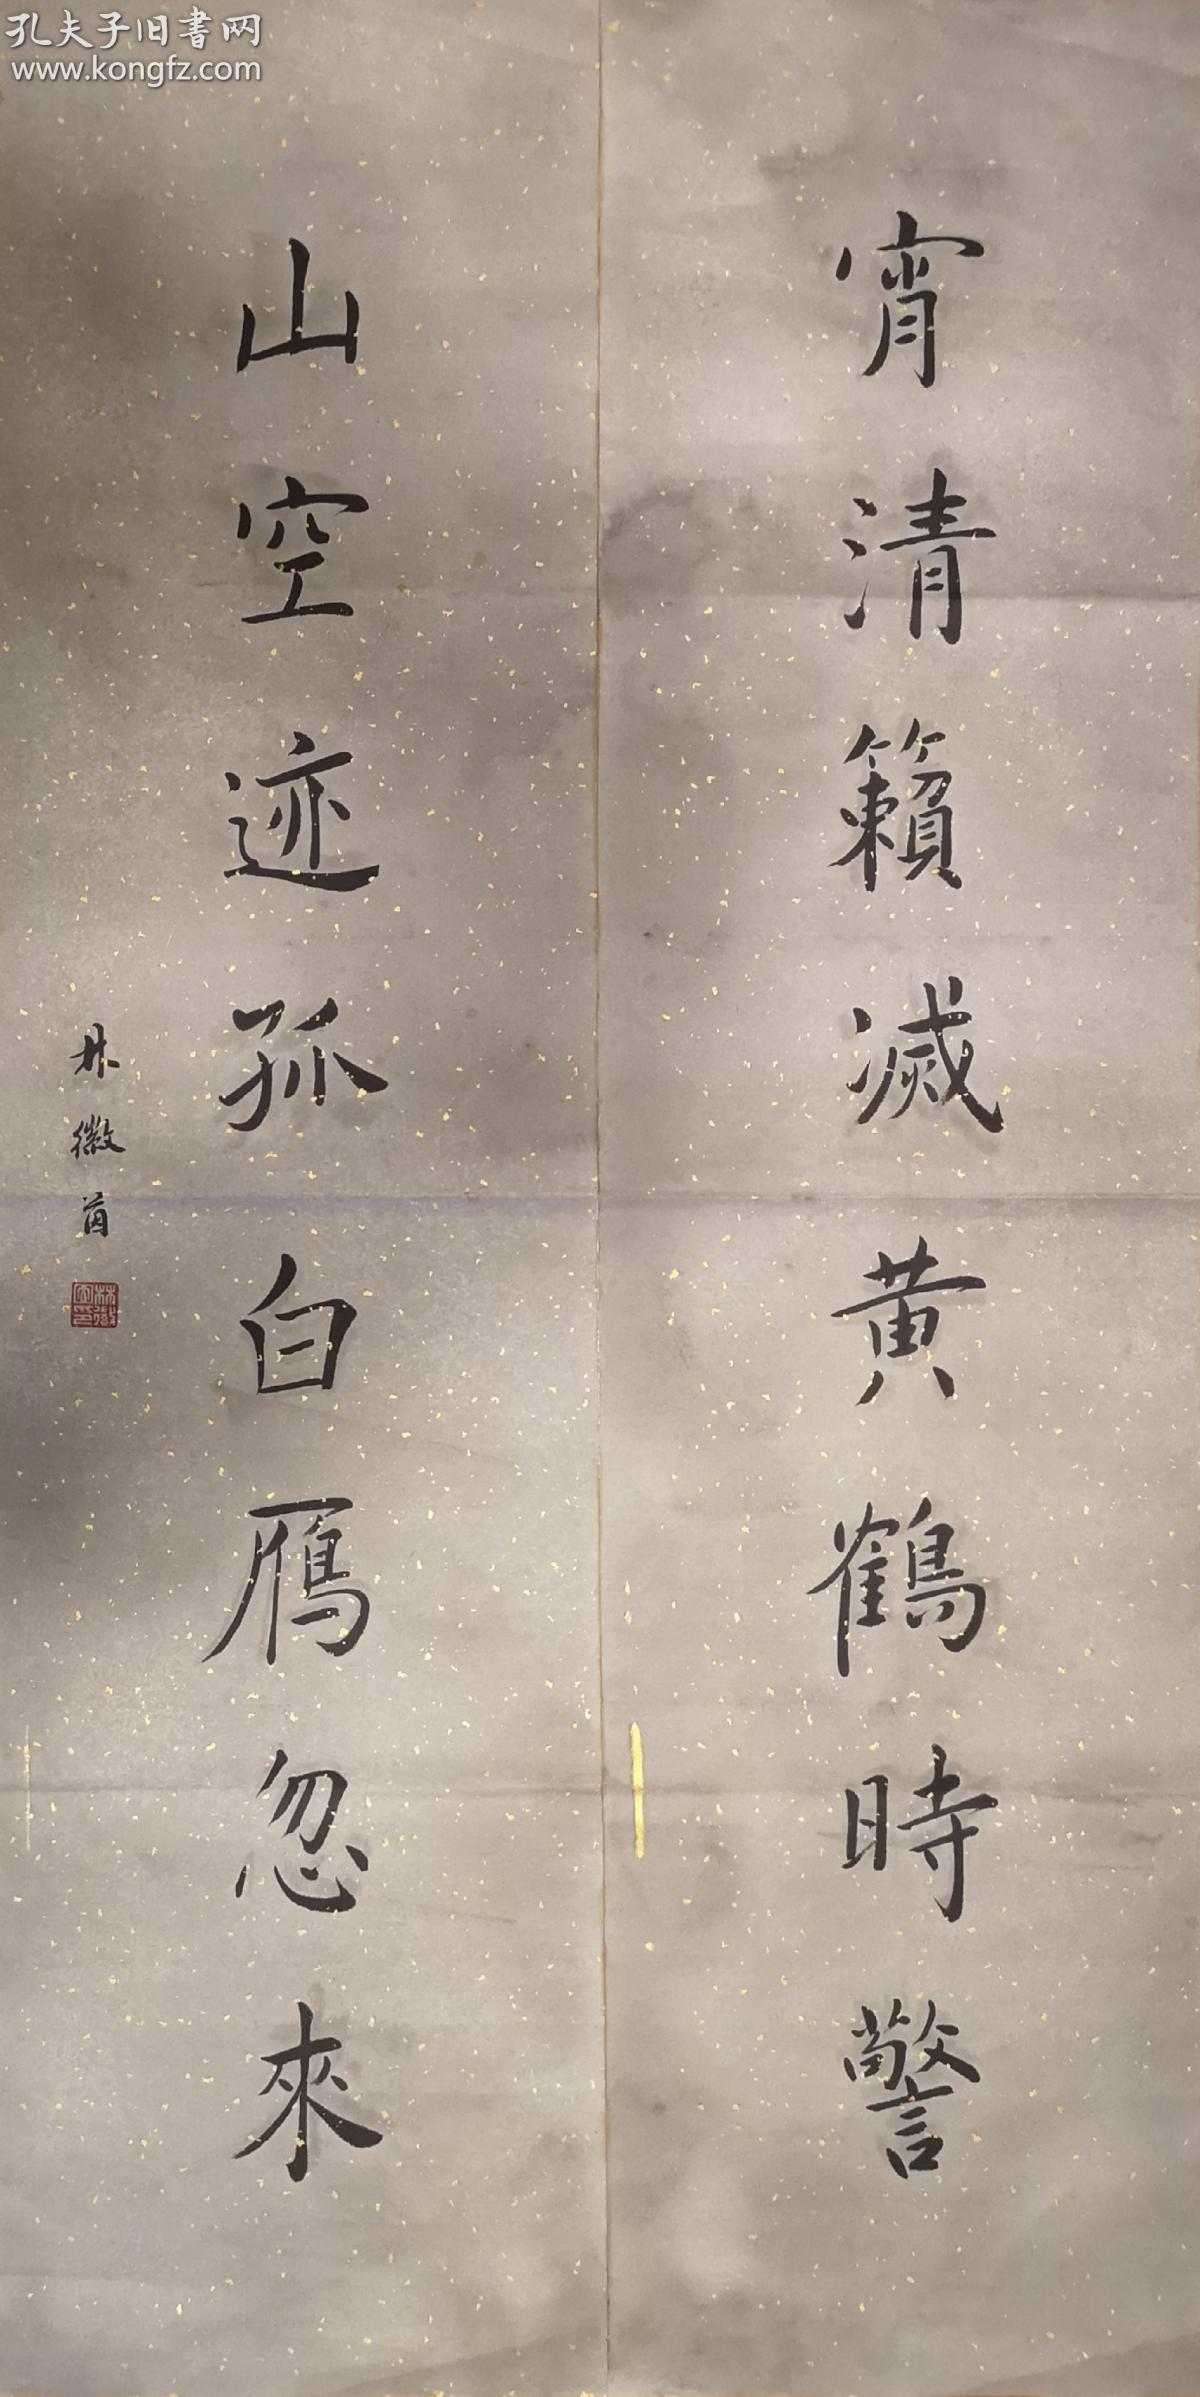 孔夫子旧書网
www.kongfz.com
宵清籟滅黄鶴時警
山空迹孤白鴈忽來
林徽茵